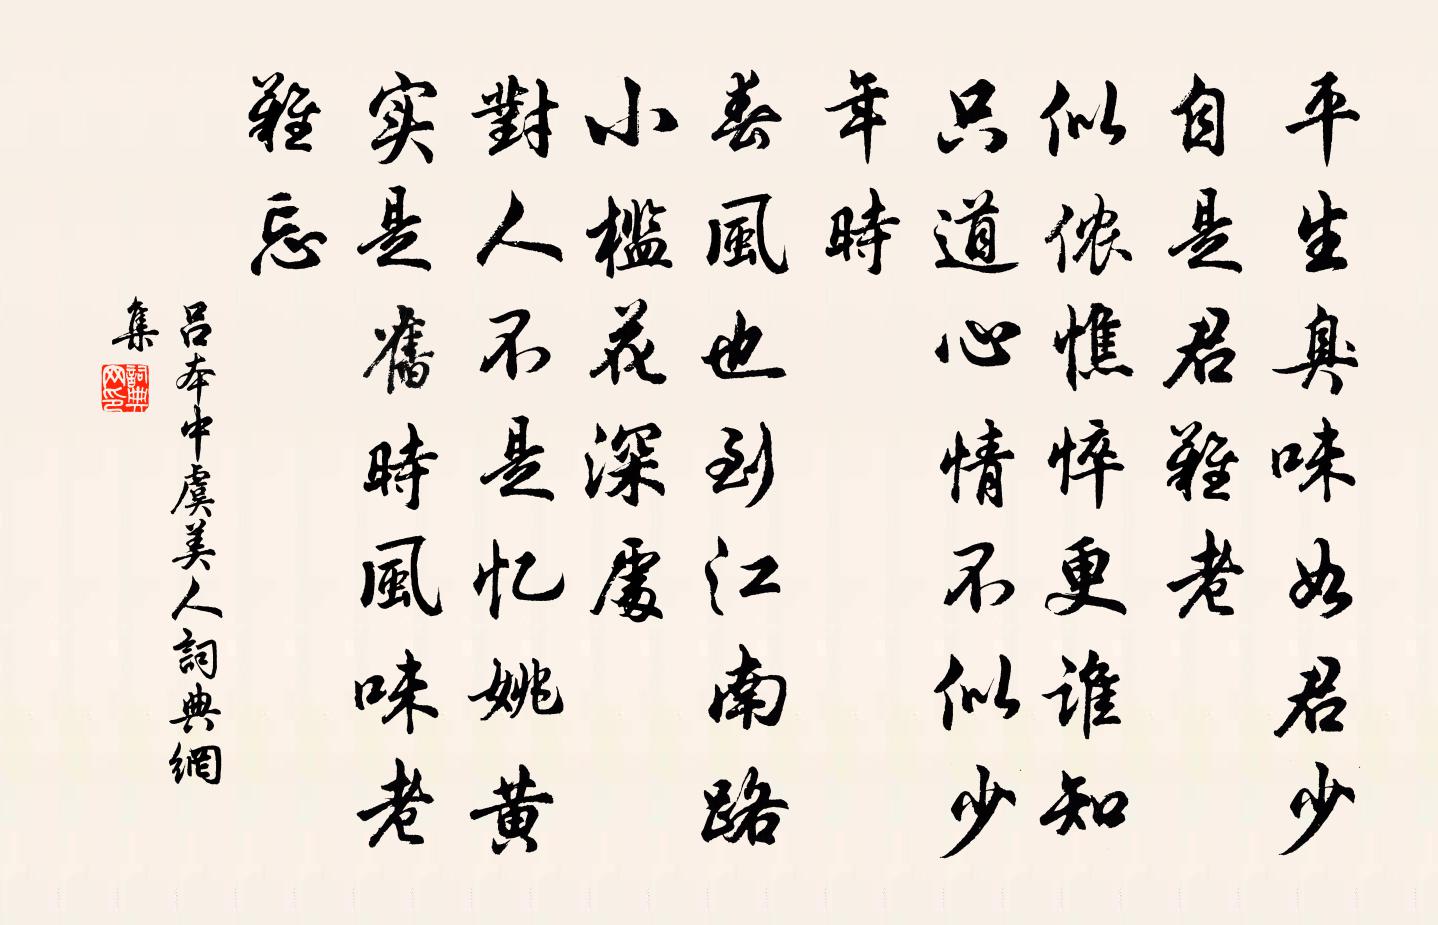 平生臭味如君少
自是君難老
似侬憔悴更谁知
只道心情不似少
年時
春風也到江南路
小槛花深處
對人不是忆姚黄
实是舊時風味老
難忘
吕本中虞美人詞典網
集
詞典
网印